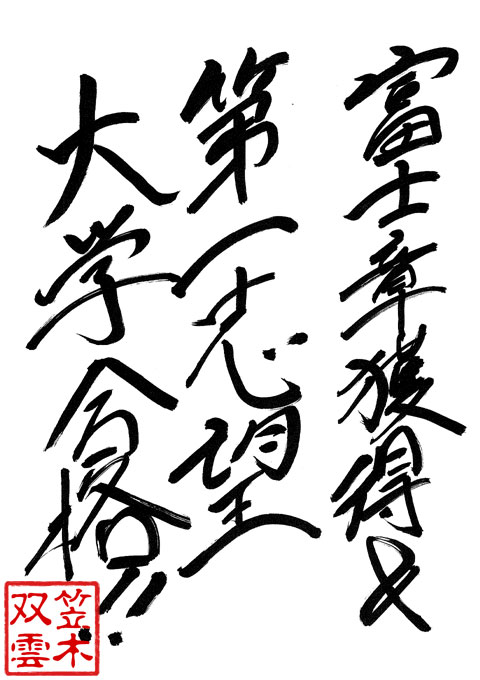 富士章獲得と
第一志望
大学合格!!
笠木
双雲